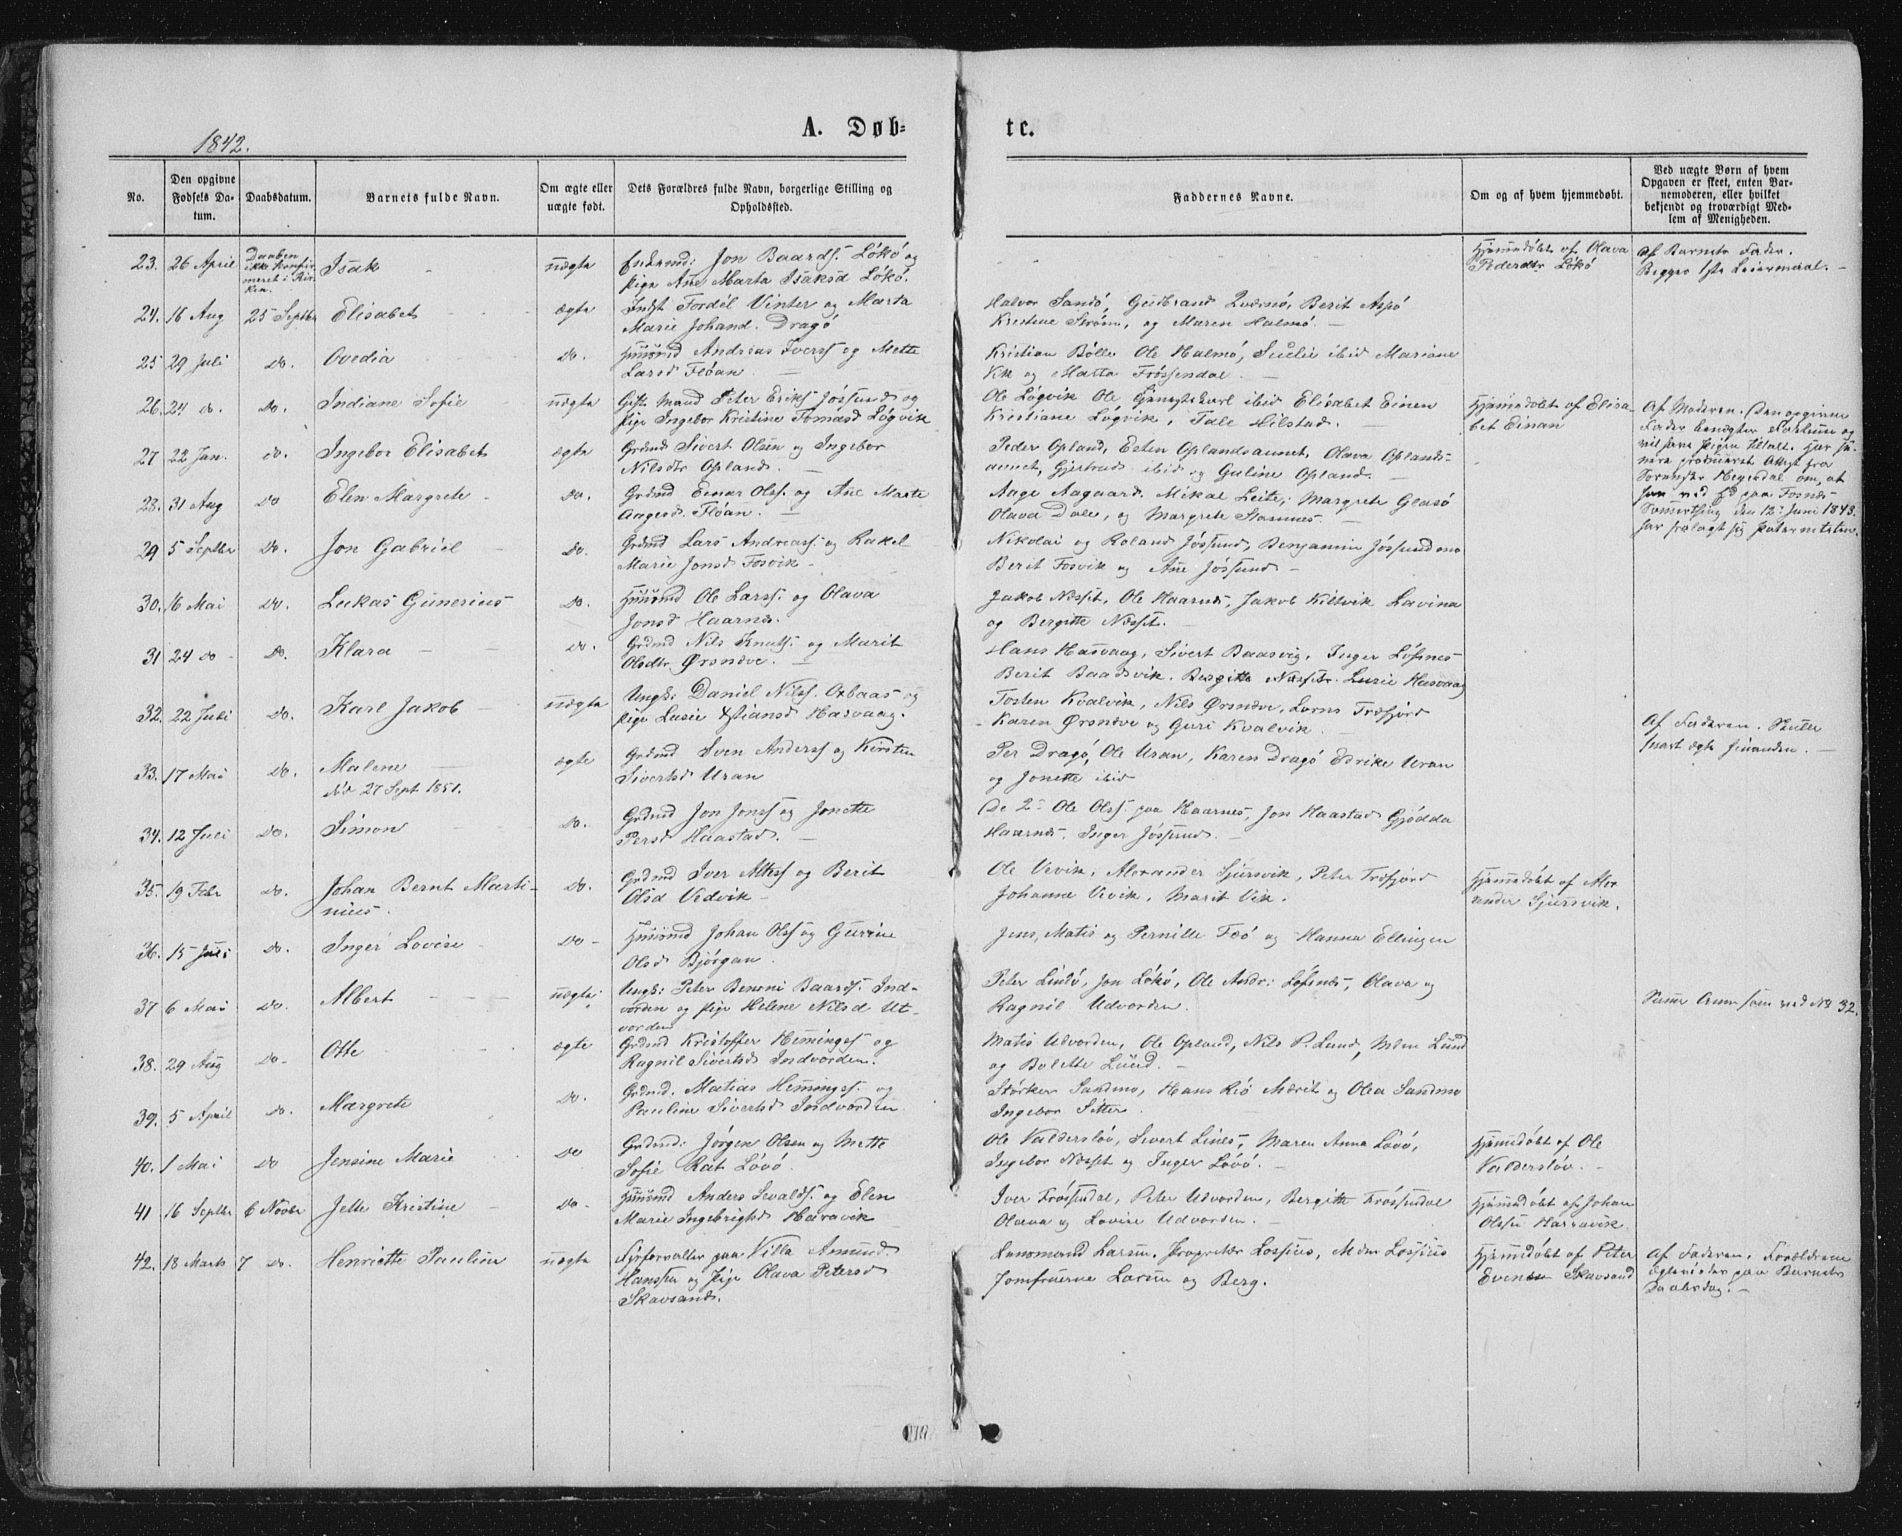 1842.
A. Døb-
te.
No.
Den opgivne Fødsels Da-tum.
Daabsdatum.
Barnets fulde Navn.
Om ægte eller uægte født.
Dets Forældres fulde Navn, borgerlige Stilling og Opholdssted.
Faddernes Navne.
Om og af hvem hjemmedøbt.
Ved uægte Børn af hvem Opgaven er skeet, enten Bar-nemoderen, eller hvilket bekjendt og troværdigt Med-lem af Menigheden.
23. 26 April Daaben ikke Konfir-meret i Kir-ken. Isak uægte Jon Baards. Lökö og
Pige Ane Marta Isaksd Lökö.
Hjemmedöbt af Olava
Pedersdtr Lökö
Af Barnets Fader.
Begges 1ste Leiermaal.
24. 16 Aug 25 Septbr Elisabet ægte Vinter og Marta
Marie Johand. Dragö
Halvor Sandö, Gudbrand Qværnö, Berit Aspö
Kristine Ström, og Maren Halmö.
25 29 Juli Do. Ovedia Do. Huusmd Andreas Iverss og Mette
Larsd Flöan.
Kristian Bölle Ole Halmö, ibid Mariane
Vik og Marta Frössendal.
26. 24 do. Do. Indiane Sofie uægte Gift Mand Peter Eriks Jössund og
Pige Ingebor Kristine Tomasd Lögvik
Ole Lögvik Ole ibid Elisabet Einen
Kristiane Lögvik, Tale Hilstad.
Hjemmedöbt af Elisa-
bet Einan
Af Moderen. Den opgivne
Fader benægter
27 22 Jan. do. Ingebor Elisabet ægte Grdmd Sivert Olsen og Ingebor
Nilsdtr Opland.
Peder Opland, Esten Oplandsaunet, Olava Oplands-
aunet, Gjertrud ibid og Guline Opland.
28. 31 Aug Do Elen Margrete Do. Grdmd Einar Olss. og Ane Marte
Aagesd. Flöan.
Aage Aagaard. Mikal Leite, Margrete Glasö
Olava Dale, og Margrete
den 12 Juni 1843.
29 5 Septbr Do. Jon Gabriel Do. Grdmd Lars Andreass. og Rakel
Marie Jonsd Fosvik
Nikolai og Roland Jössund, Benjamin Jössundmo
Berit Fosvik og Ane Jössund
30. 16 Mai Do. Lukas Gunerius Do. Huusmd Ole Larss. og Olava
Jonsd Haarnes.
Jakob Næsset, Ole Haarnes, Jakob Kiltvik Lavina
og Bergitte Næsset.
31 24 do Do. Klara Do. Grdmd Nils Knuts og Marit
Olsdtr. Örsndve.
Hans Hasvaag, Sivert Baasvig, Inger Löfsnes
Berit Baadsvik. Bergitte Næsset. Lusie Hasvaag
32. 22 Juli Do. Karl Jakob uægte Ungk: Daniel Nilss. Oxbaas og
Pige Lusie Hasvaag.
Tosten Kvalvik, Nils Örsndve, Lorns Træfjord
Karen Örsndve og Guri Kvalvik.
Af Faderen. Skulle
snart ægte hinanden.
33. 17 Mai Do. Malene
Död 27 Sept 1851.
ægte Grdmd Sven Anderss og Kirsten
Sivertsd Uran
Per Dragö, Ole Uran, Karen Dragö Edrike Uran
og Jonette ibid
34. 12 Juli Do. Simon Do. Grdmd Jon Jonss og Jonette
Persd Haastad.
De 2 Ole Olss. paa Haarnes, Jon Haastad Gjödda
Haarnes. Inger Jössund.
35. 19 Febr do. Johan Bernt Marti-
nius.
Do. Grdmd Iver og Berit
Olsd Vedvik
Ole Vevik, Alexander Sjursvik, Peter Træfjord
Johanna Vevik, Marit Vik.
Hjemmedöbt af Alex
ander Sjursvik.
36. 15 Juli Do. Inger Lovise Do Huusmd Johan Olss og Gurine
Olsd Björgan.
Jens, Matis og Pernille Feö og Hanna Ellingen
37 6 Mai Do. Albert uægte Ungk: Peter Benoni Baards. Ind-
vorden og Pige Helene Nilsd Ut-
vorden
Peter Lindö, Jon Lökö, Ole Andr: Löfsnes, Olava og
Ragnil Udvorden.
Samme som ved No 32.
38. 29 Aug Do Otte ægte Grdmd Kristoffer Heminges og
Ragnil Sivertsd Indvorden.
Matis Udvorden, Ole Opland, Nils P. Lund, Lund
og Bolette Lund.
39. 5 April Do. Margrete Do. Grdmd. Matias Hemings. og
Pauline Sivertsd Indvorden
Störker Sandmo, Hans Riö Marit og Olea Sandmo
Ingebor Sitter.
40. 1 Mai Do Jensine Marie Do Grdmd: Jörgen Olsen og Mette
Sofie Rat Lövö.
Ole Valderslöv, Sivert Lines, Maren Anna Lövö,
Ingebor Næsset og Inger Lövö.
Hjemmedöbt af Ole
Valderslöv.
41 16 Septbr 6 Novbr Jette Kristine Do Huusmd Anders Sevalds. og Elen
Marie Ingebrigtsd Haravik
Iver Frössendal, Peter Udvorden, Bergitte Frössendal
Olava og Lovise Udvorden.
Hjemmedöbt af Johan
Olsen Harravik
42. 18 Marts 7 Do. Henriette Pauline uægte Fyrforvalter paa Villa Amund
Hanssen og Pige Olava Petersd
Skavsand.
Lensmand Larsen, Proprietær Lossius, Lossius
Jomfruerne Larsen og Berg.
Hjemmedöbt af Peter
Evensen Skavsand
Af Faderen. Forældrene
ægteviedes paa Barnets
Daabsdag.